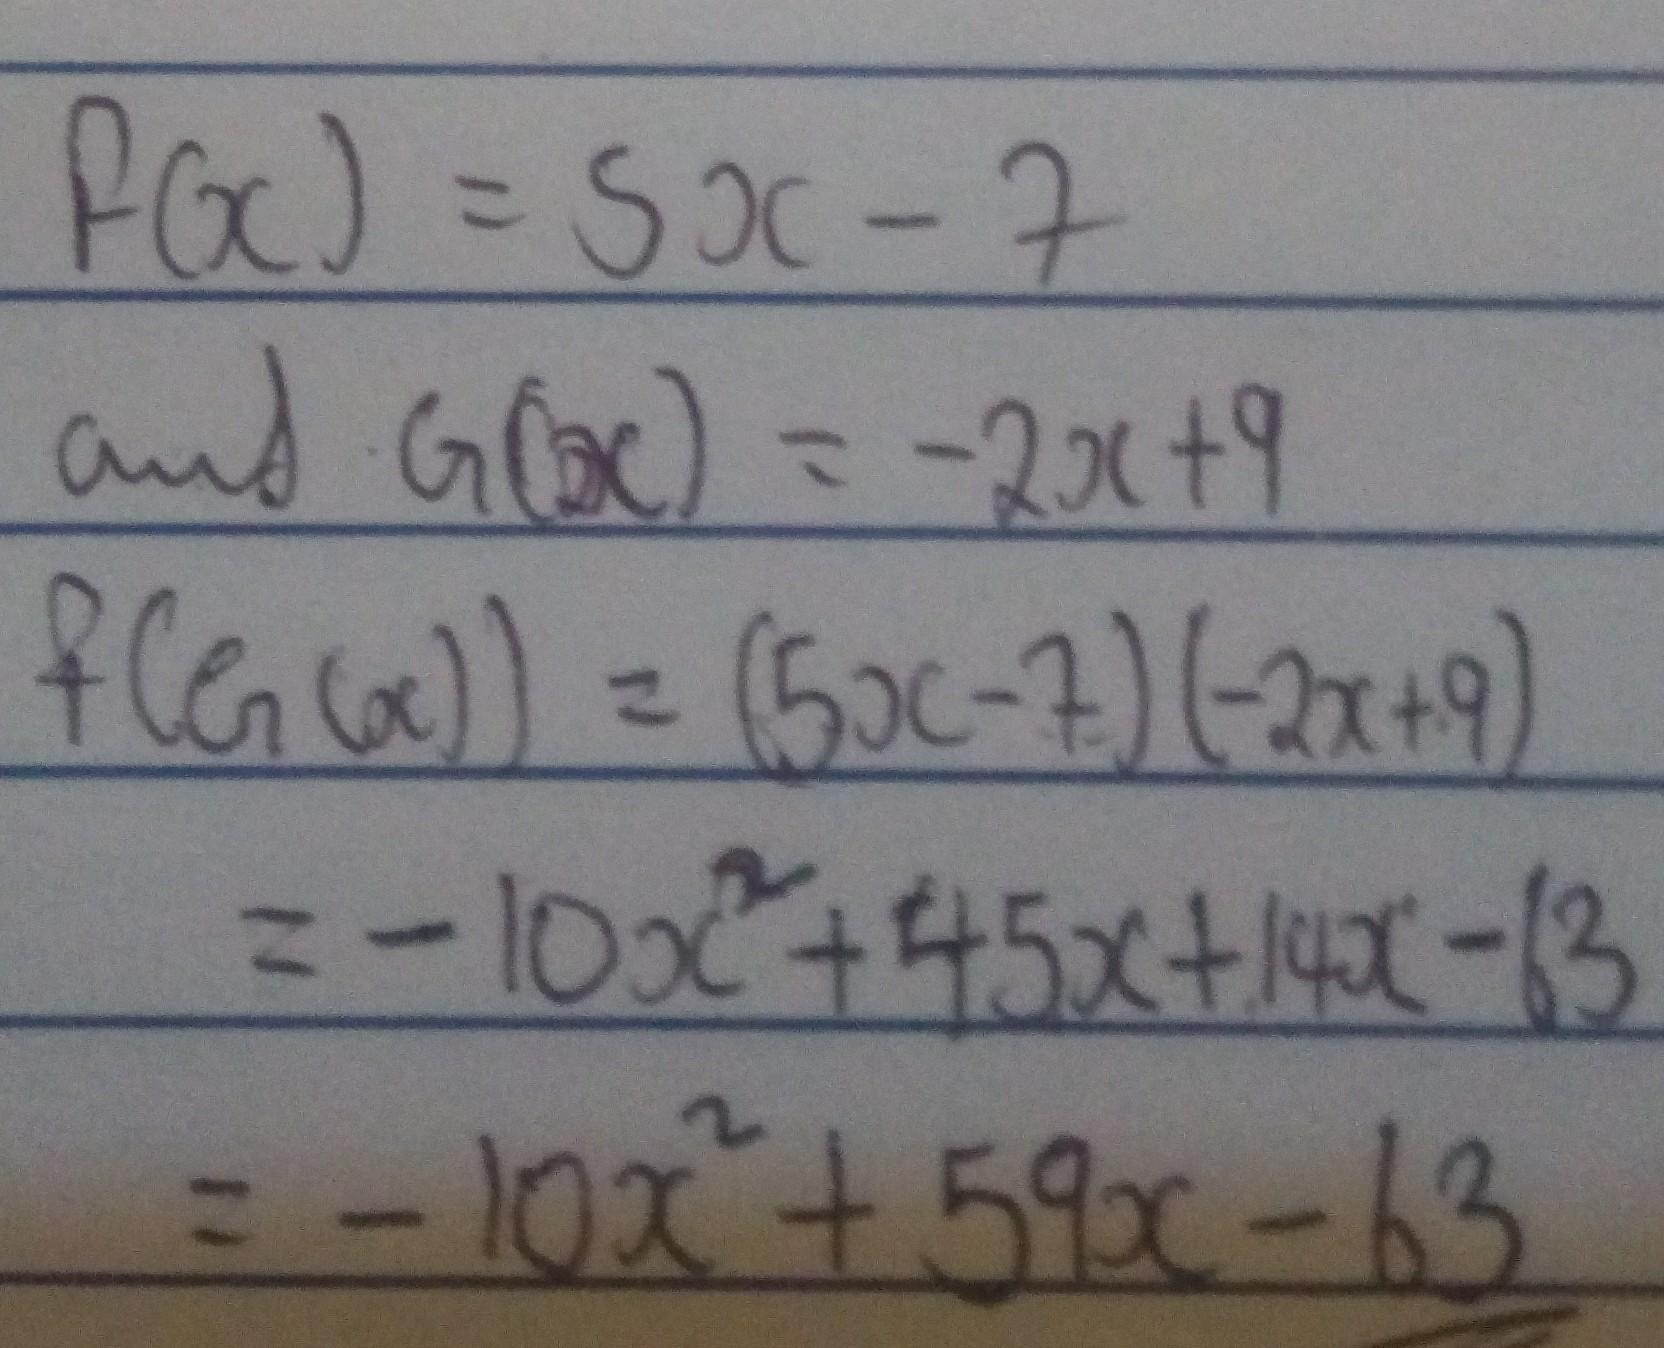 f(x) = 5x - 7
and G(x) = -2x+9
f(G(x)) = (5x-7)(-2x+9)
= -10x² + 45x + 14x - 63
= -10x² + 59x - 63